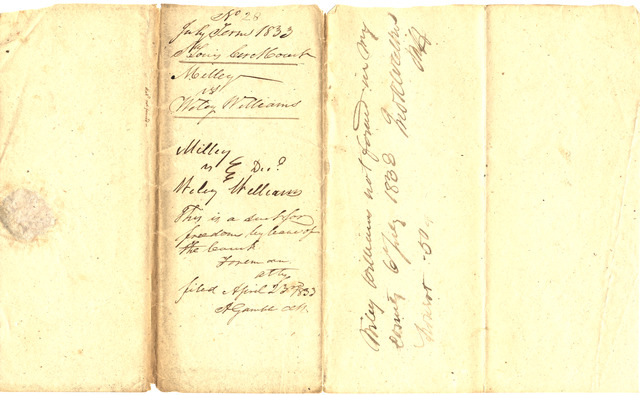 No 28
July Term 1833
St Louis Cir Court
Milley
vs
Wiley Williams
Milley
vs
Wiley Williams
This is a suit for
freedom by leave of
the Court
atty
filed April 23rd 1833
A Gamble clk
Wiley Williams not found in my
County